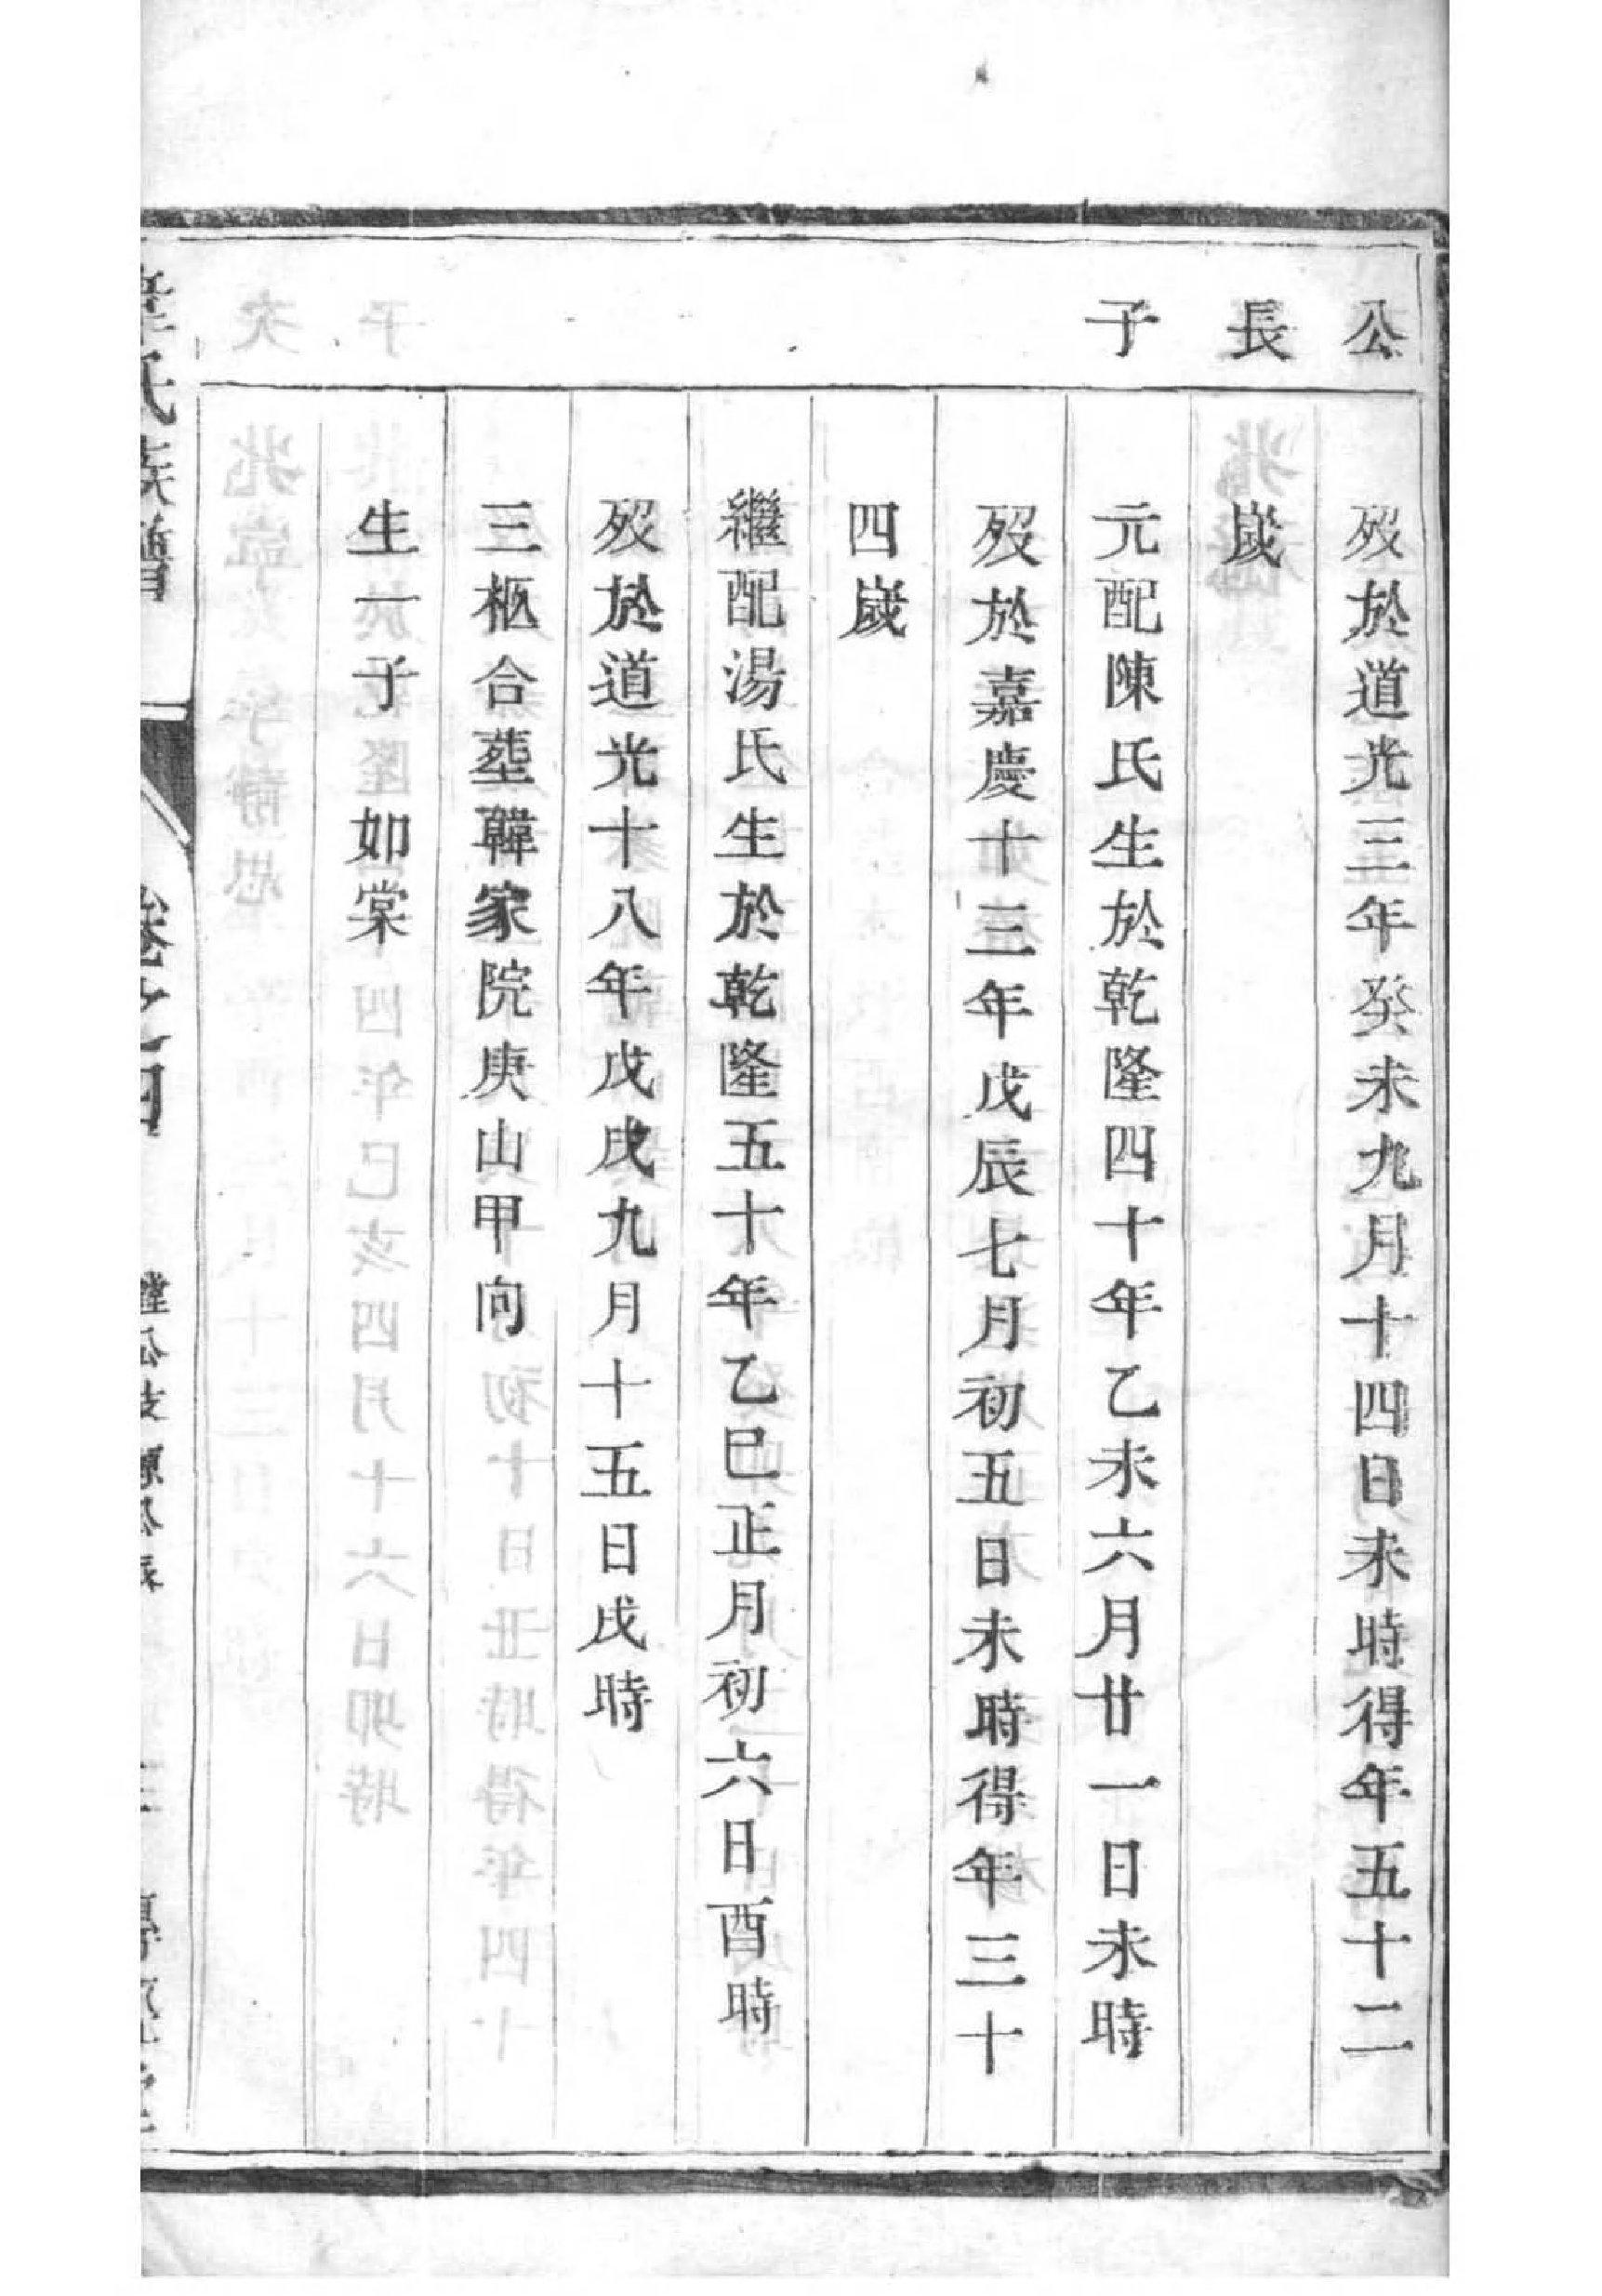 公長子
歿於道光三年癸未九月十四日未時得年五十二
歲
元配陳氏生於乾隆四十年乙未六月廿一日未時
歿於嘉慶十三年戊辰七月初五日未時得年三十
四歲
繼配湯氏生於乾隆五十年乙巳正月初六日酉時
歿於道光十八年戊戌九月十五日戌時
三柩合塟韓家院庚山甲向
生一子 如棠
氏族譜
卷之四